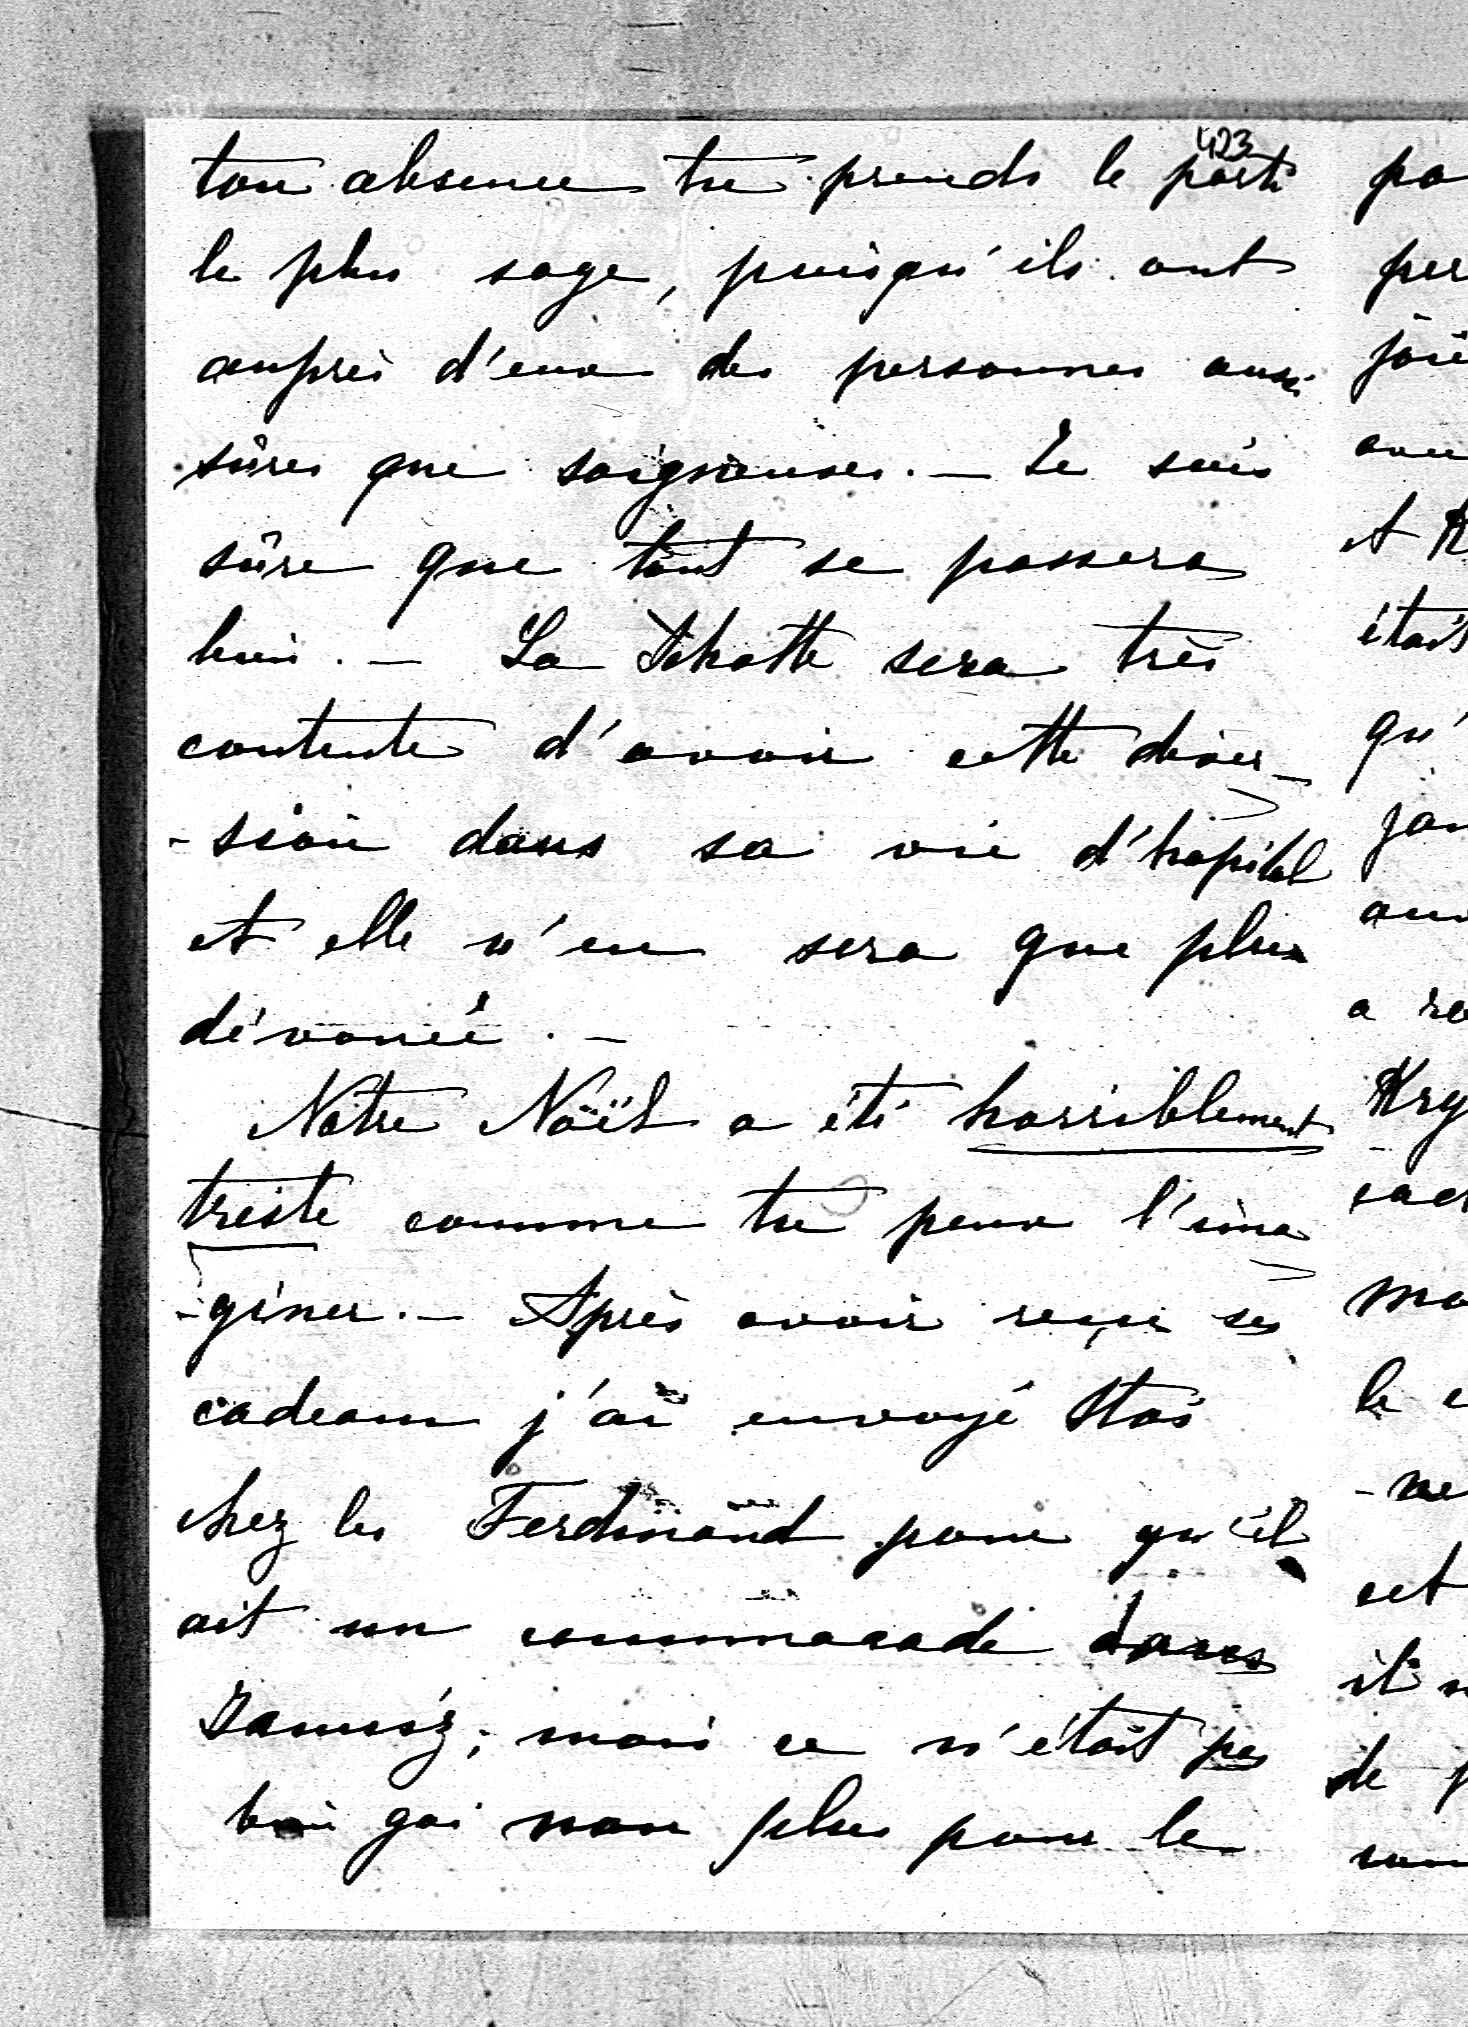 423
ton absence tu prends le parti
le plus sage, puisqu'ils ont
auprès d'eux des personnes aussi
sûres que soigneuses. — Je suis
sûre que tout se passera
bien. — La Schotte sera très
contente d'avoir cette diver-
-sion dans sa vie d'hôpital
et elle n'en sera que plus
dévouée. —
Notre Noël a été horriblement
triste comme tu peux l'ima
-giner. — Après avoir reçu ses
cadeaux j'ai envoyé Stas
chez les Ferdinand pour qu'il
ait un cammarade dans
Janusz; mais ce n'était pas
bien gai non plus pour le
pa
per
joie
avec
et K
était
qu'
jan
a re
Kry
sacr
ma
le c
-ne
cet
il n
de p